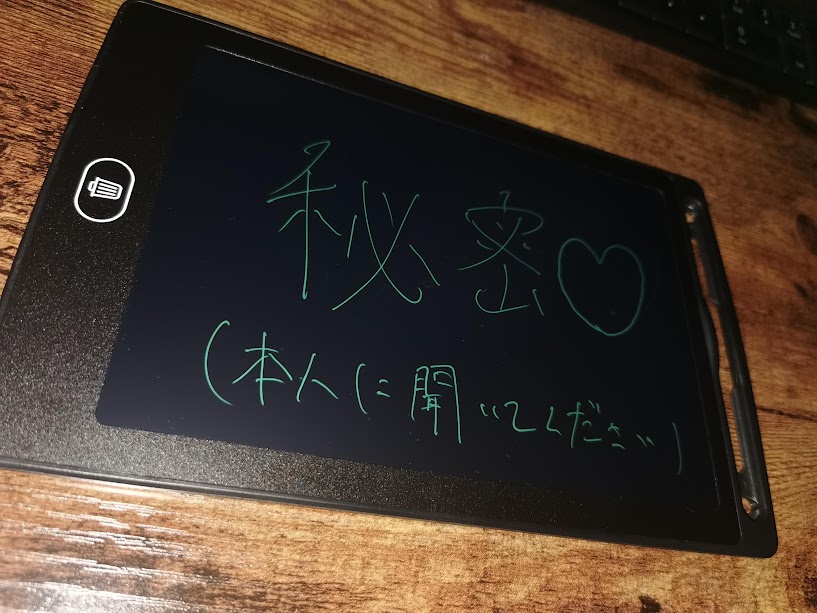 秘密♡
(本人に聞いてください)